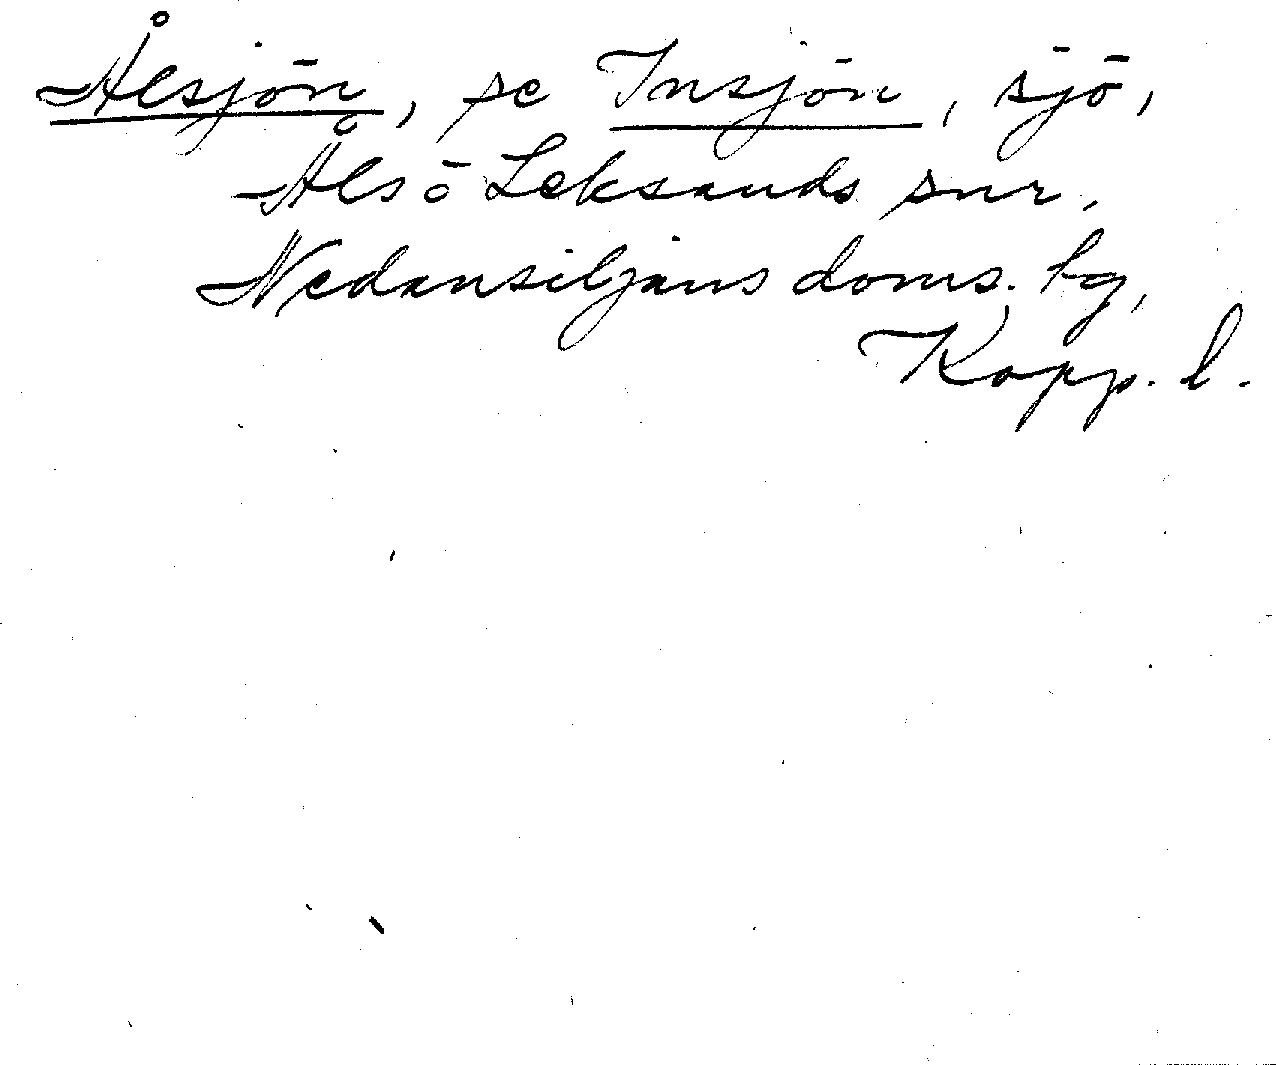 Ålsjön, se Insjön, sjö,
Åls o Leksands snr,
Nedansiljans doms. bg,
Kopp. l.